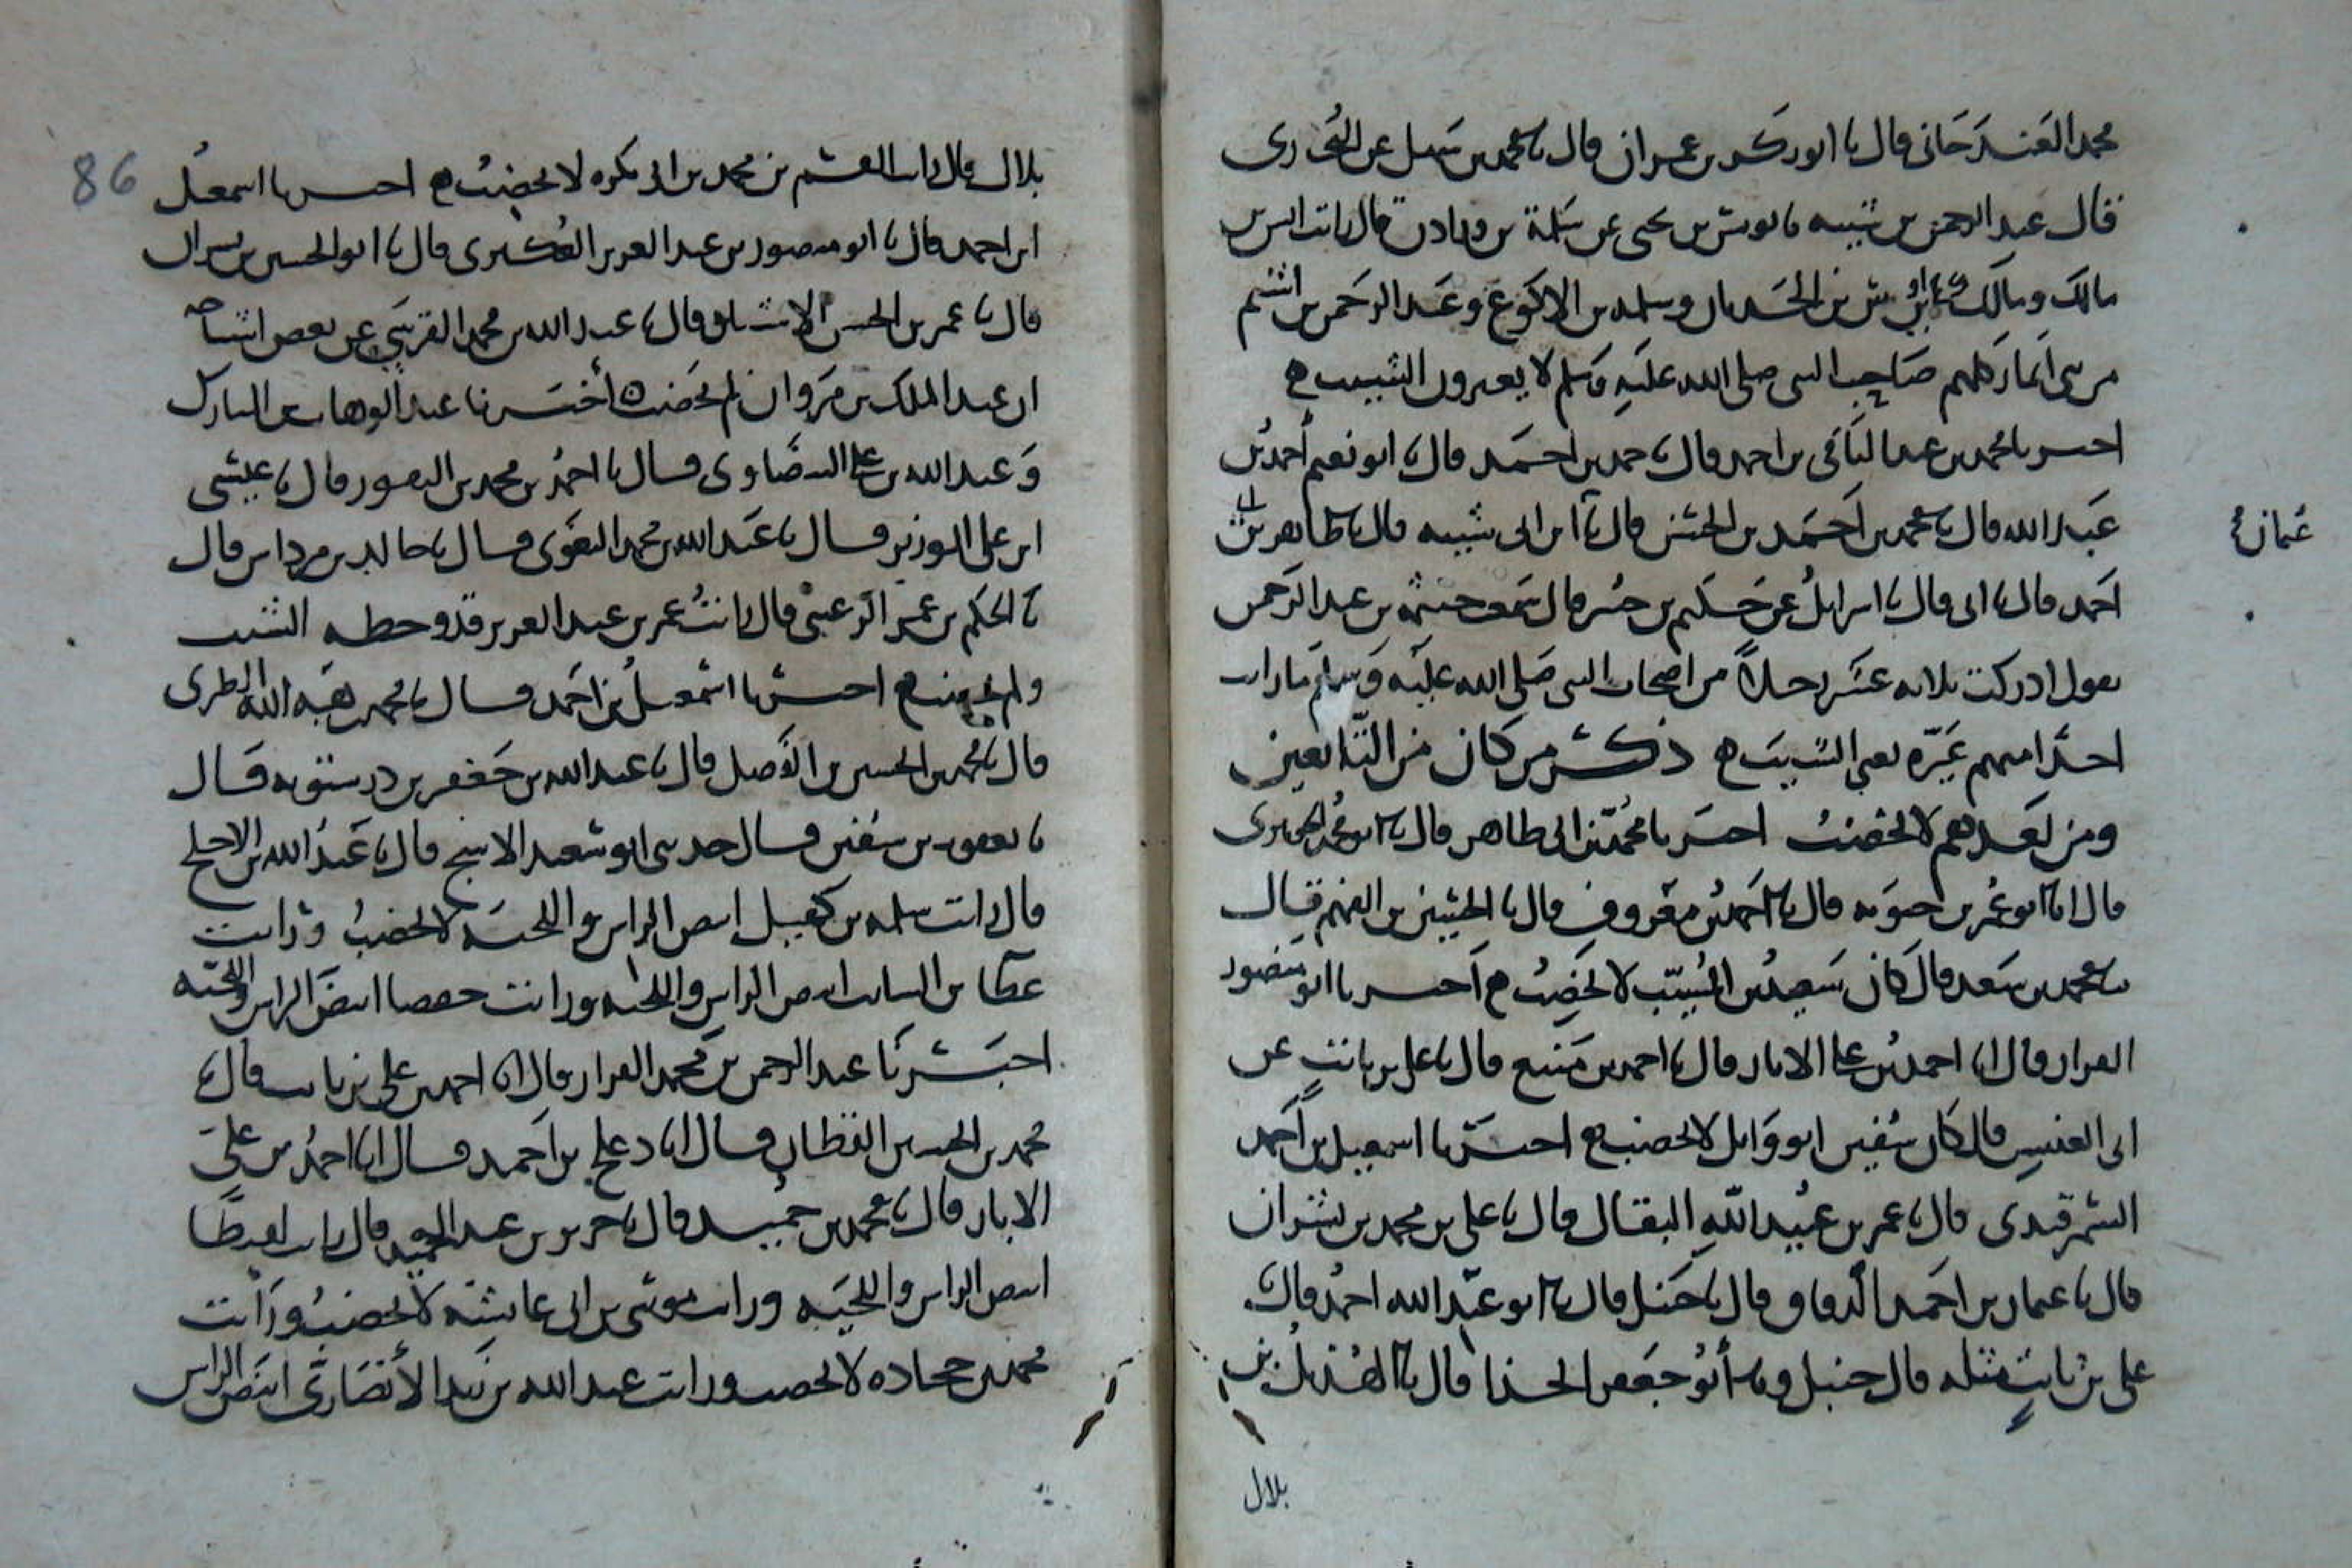 محمد الغندجانى قال نا ابو بكر بن عمران قال نا محمد بن سهل عن البخارى
قال عبد الرحمن بن شيبه نا يونس بن يحيى عن سلمة بن وردان قال رايت انس بن
مالك ومالك بن اوس بن الحدثان وسلمه بن الاكوع وعبد الرحمن بن اشيم
من بنى انمار كلهم صاحب النبى صلى الله عليه وسلم لا يغيرون الشيب
اخبرنا محمد بن عبد الباقى بن احمد قال نا حمد بن احمد قال نا ابو نعيم احمد بن
عبد الله قال نا محمد بن احمد بن الحسن قال نا ابن ابى شيبه قال نا طاهر بن ابى
عثمان
احمد قال نا ابى قال نا اسرايل عن حكيم بن جبير قال سمعت خيثمه بن عبد الرحمن
يقول ادركت ثلاثه عشر رجلا من اصحاب النبى صلى الله عليه وسلم ما رايت
احدا منهم غيره يعنى الشيب ذكر من كان من التابعين
ومن بعدهم لا يخضب اخبرنا محمد بن ابى طاهر قال نا ابو محمد الجوهرى
قال انا ابو عمر بن حيويه قال نا احمد بن معروف قال نا الحسين بن الفهم قال
نا محمد بن سعد قال كان سعيد بن المسيب لا يخضب اخبرنا ابو منصور
القزاز قال انا احمد بن على الابار قال نا احمد بن منيع قال نا على بن ثابت عن
ابى العنبس قال كان شقيق ابو وايل لا يخضب اخبرنا اسمعيل بن احمد
السمرقندى قال نا عمر بن عبيد الله البقال قال نا على بن محمد بن بشران
قال نا عثمان بن احمد الدقاق قال نا حنبل قال نا ابو عبد الله احمد قال نا
على بن ثابت مثله قال حنبل ونا أبو جعفر الحذا قال نا الهذيل بن
بلال
86
بلال قال رايت القسم بن محمد بن ابى بكره لا يخضب اخبرنا اسمعيل
ابن احمد قال نا ابو منصور بن عبد العزيز العكبرى قال نا ابو الحسين بن بشران
قال نا عمر بن الحسن الاشنانى قال نا عبد الله بن محمد القرشى عن بعض اشياخه
ان عبد الملك بن مروان لم يخضب أخبرنا عبد الوهاب بن المبارك
وعبد الله بن على البيضاوى قالا نا احمد بن محمد بن النقور قال نا عيسى
ابن على الوزير قال نا عبد الله بن محمد البغوى قال نا خالد بن مرداس قال
نا الحكم بن عمر الرعينى قال رايت عمر بن عبد العزيز قد وخطه الشيب
ولم يخضب اخبرنا اسمعيل بن احمد قال نا محمد بن هبه الله الطبرى
قال نا محمد بن الحسين بن الفضل قال نا عبد الله بن جعفر بن درستويه قال
نا يعقوب بن سفين قال حدثنى ابو سعيد الاشج قال نا عبد الله بن الاجلح
قال رايت سلمه بن كهيل ابيض الراس واللحيه لا يخضب ورايت
عطا بن السايب ابيض الراس واللحيه ورايت حفصا ابيض الراس واللحيه
اخبرنا عبد الرحمن بن محمد القزاز قال انا احمد بن على بن ثابت قال نا
محمد بن الحسين القطان قال انا دعلج بن احمد قال انا احمد بن على
الابار قال نا محمد بن حميد قال نا جرير بن عبد الحميد قال رايت لقيطا
ابيض الراس واللحيه ورايت موسى بن ابى عايشه لا يخضب ورأيت
محمد بن جحاده لا يخضب ورايت عبد الله بن يزيد الأنصارى ابيض الراس